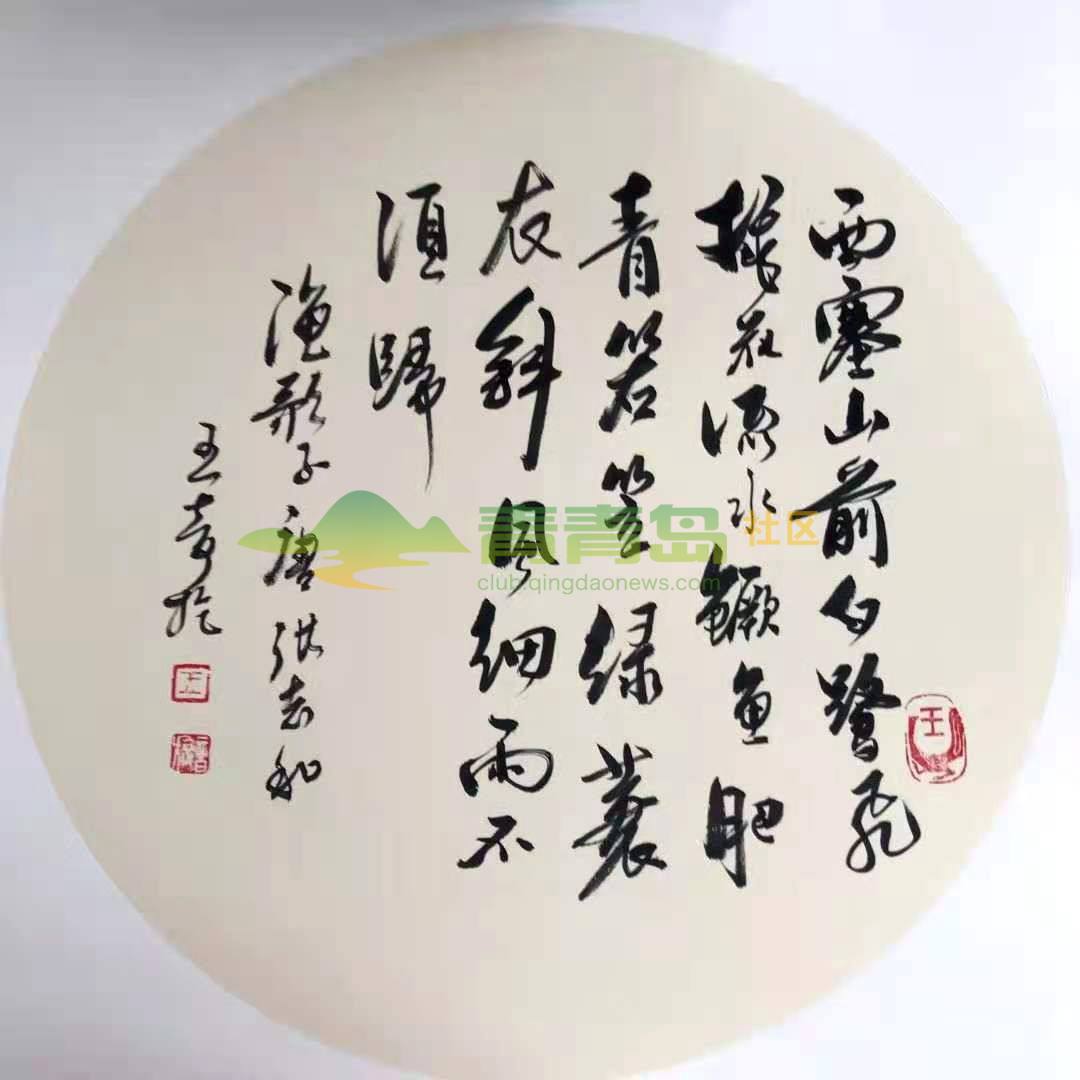 西塞山前白鷺飛
桃花流水鱖魚肥
青箬笠绿蓑
衣斜風细雨不
須歸
渔歌子唐张志和
王
王
王
青青岛社区
club.qingdaonews.com